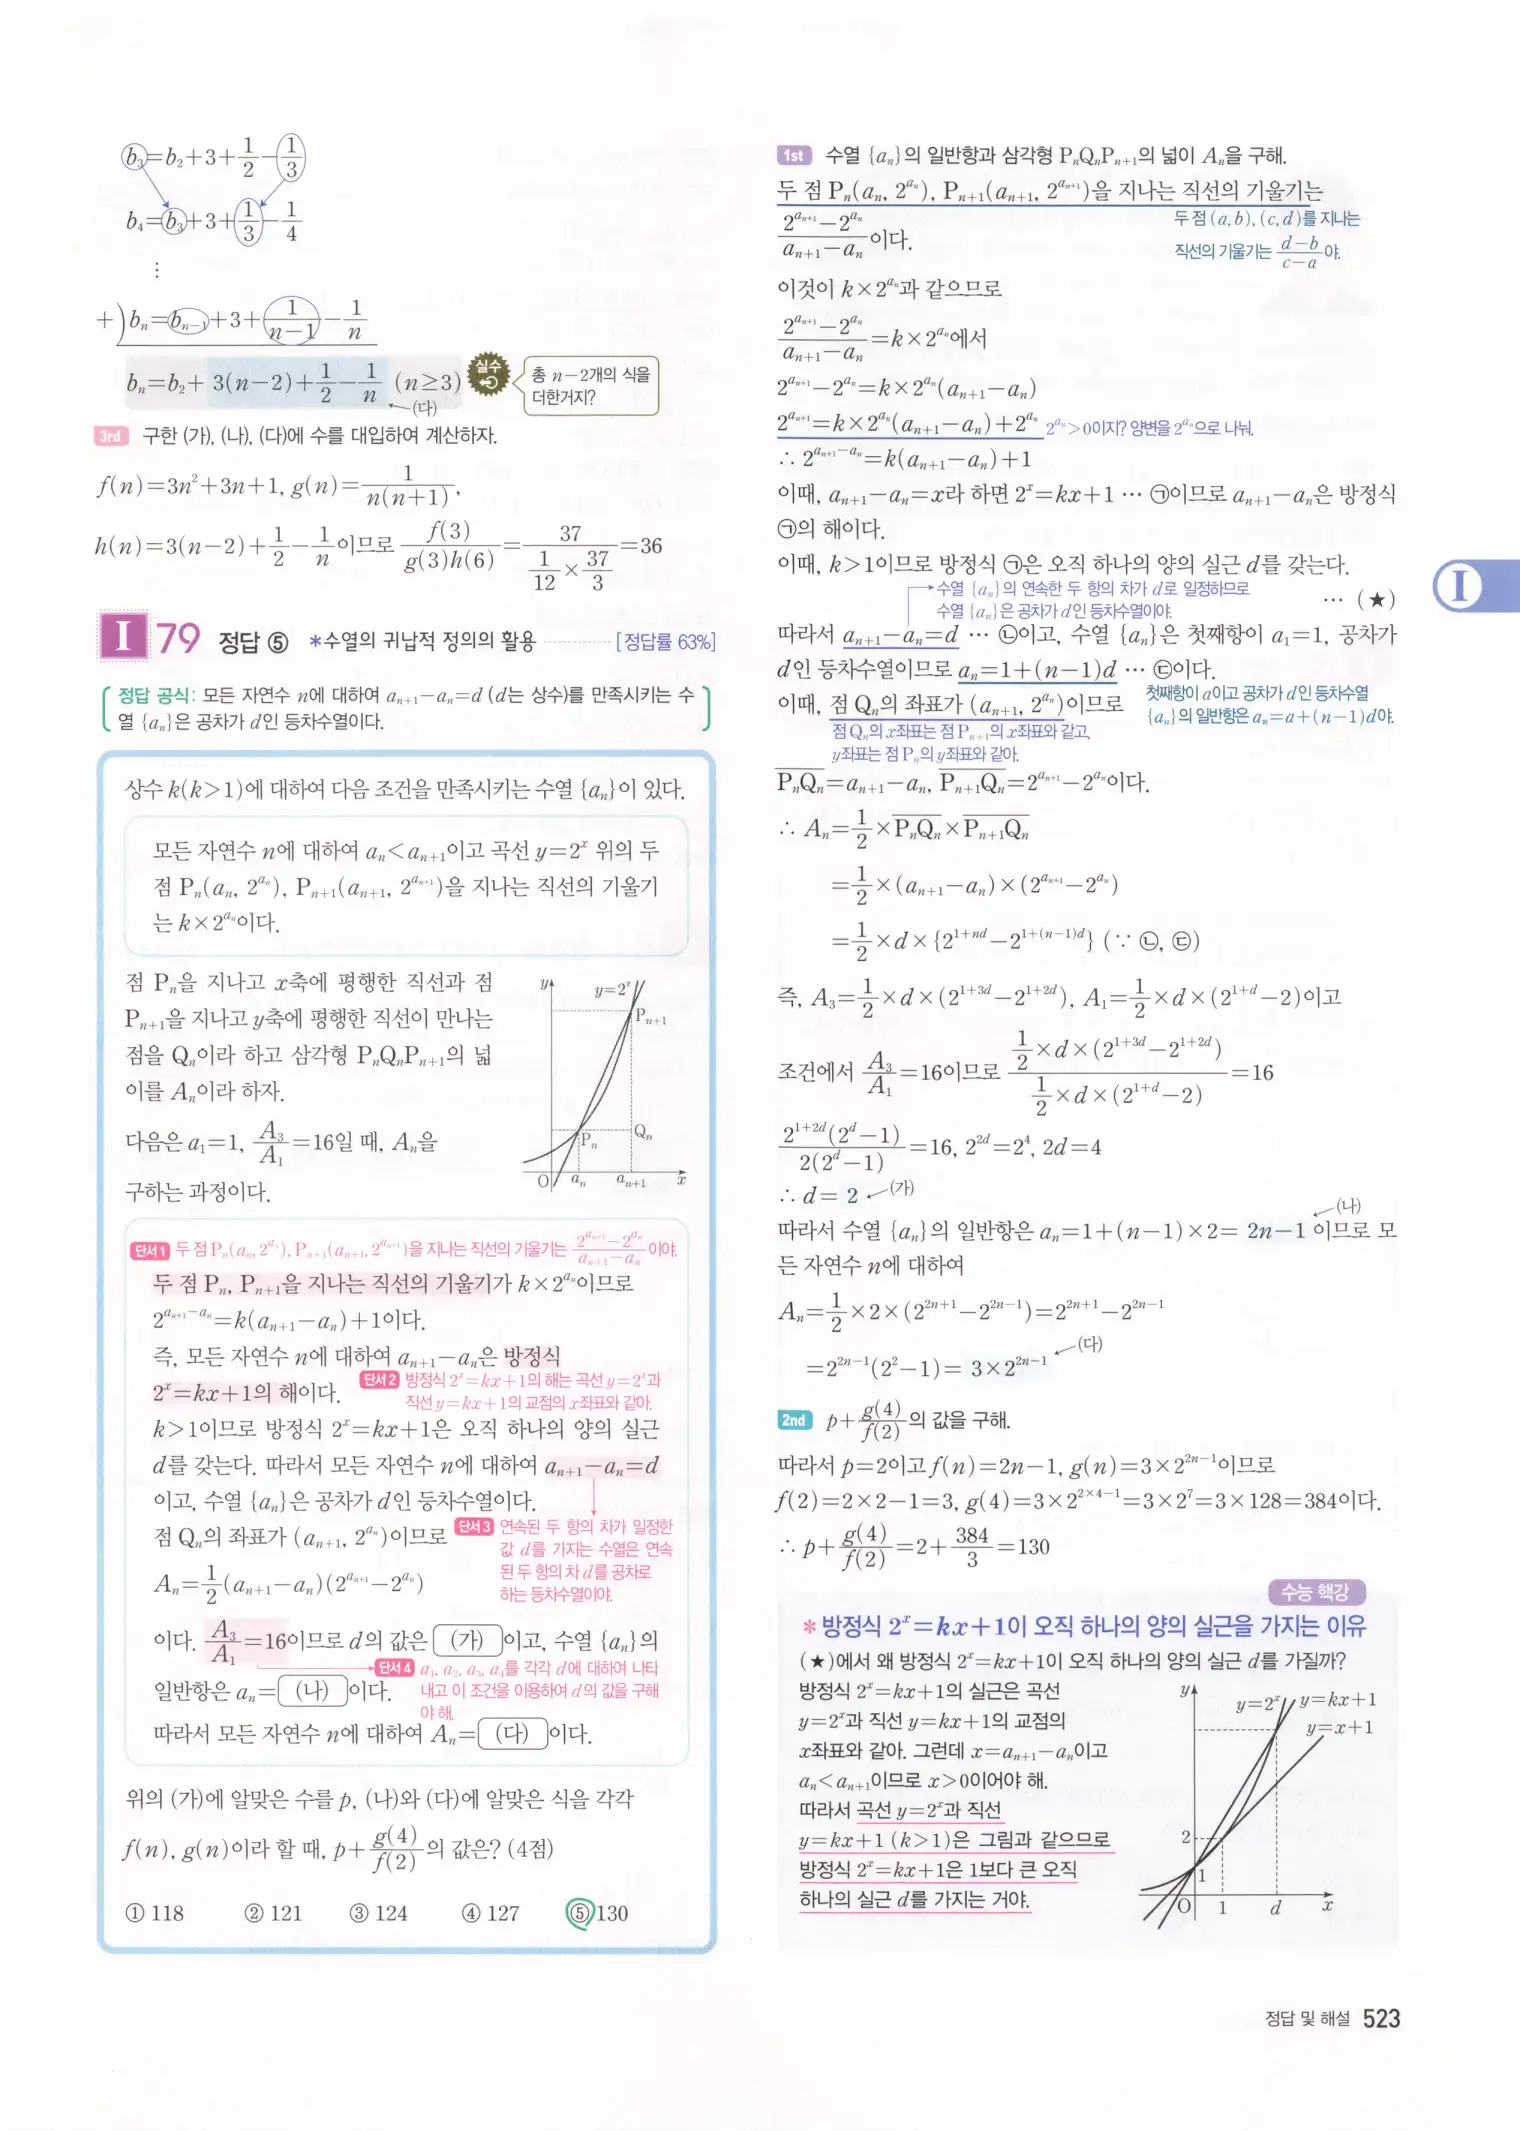 b₃=b₂+3+1/2-1/3
b₄=b₃+3+1/3-1/4
⋮
+) bₙ=bₙ₋₁+3+1/(n-1)-1/n
bₙ=b₂+ 3(n-2)+1/2-1/n (n≥3)
(다)
실수
총 n-2개의 식을
더한거지?
3rd 구한 (가), (나), (다)에 수를 대입하여 계산하자.
f(n)=3n²+3n+1, g(n)=1/(n(n+1)),
h(n)=3(n-2)+1/2-1/n이므로 f(3)/(g(3)h(6))=37/(1/12×37/3)=36
I 79 정답 ⑤ *수열의 귀납적 정의의 활용 [정답률 63%]
정답 공식: 모든 자연수 n에 대하여 aₙ₊₁-aₙ=d (d는 상수)를 만족시키는 수
열 {aₙ}은 공차가 d인 등차수열이다.
상수 k(k>1)에 대하여 다음 조건을 만족시키는 수열 {aₙ}이 있다.
모든 자연수 n에 대하여 aₙ<aₙ₊₁이고 곡선 y=2ˣ 위의 두
점 Pₙ(aₙ, 2^(aₙ)), Pₙ₊₁(aₙ₊₁, 2^(aₙ₊₁))을 지나는 직선의 기울기
는 k×2^(aₙ)이다.
점 Pₙ을 지나고 x축에 평행한 직선과 점
Pₙ₊₁을 지나고 y축에 평행한 직선이 만나는
점을 Qₙ이라 하고 삼각형 PₙQₙPₙ₊₁의 넓
이를 Aₙ이라 하자.
다음은 a₁=1, A₃/A₁=16일 때, Aₙ을
구하는 과정이다.
y
y=2ˣ
Pₙ₊₁
Pₙ
Qₙ
O aₙ aₙ₊₁ x
단서1 두 점 Pₙ(aₙ, 2^(aₙ)), Pₙ₊₁(aₙ₊₁, 2^(aₙ₊₁))을 지나는 직선의 기울기는 (2^(aₙ₊₁)-2^(aₙ))/(aₙ₊₁-aₙ)이야.
두 점 Pₙ, Pₙ₊₁을 지나는 직선의 기울기가 k×2^(aₙ)이므로
2^(aₙ₊₁-aₙ)=k(aₙ₊₁-aₙ)+1이다.
즉, 모든 자연수 n에 대하여 aₙ₊₁-aₙ은 방정식
2ˣ=kx+1의 해이다.
단서2 방정식 2ˣ=kx+1의 해는 곡선 y=2ˣ과
직선 y=kx+1의 교점의 x좌표와 같아.
k>1이므로 방정식 2ˣ=kx+1은 오직 하나의 양의 실근
d를 갖는다. 따라서 모든 자연수 n에 대하여 aₙ₊₁-aₙ=d
이고, 수열 {aₙ}은 공차가 d인 등차수열이다.
점 Qₙ의 좌표가 (aₙ₊₁, 2^(aₙ))이므로
단서3 연속된 두 항의 차가 일정한
값 d를 가지는 수열은 연속
된 두 항의 차 d를 공차로
하는 등차수열이야.
Aₙ=1/2(aₙ₊₁-aₙ)(2^(aₙ₊₁)-2^(aₙ))
이다. A₃/A₁=16이므로 d의 값은 (가) 이고, 수열 {aₙ}의
단서4 a₁, a₂, a₃, a₄를 각각 d에 대하여 나타
내고 이 조건을 이용하여 d의 값을 구해
야 해.
일반항은 aₙ= (나) 이다.
따라서 모든 자연수 n에 대하여 Aₙ= (다) 이다.
위의 (가)에 알맞은 수를 p, (나)와 (다)에 알맞은 식을 각각
f(n), g(n)이라 할 때, p+g(4)/f(2)의 값은? (4점)
① 118 ② 121 ③ 124 ④ 127 ⑤ 130
1st 수열 {aₙ}의 일반항과 삼각형 PₙQₙPₙ₊₁의 넓이 Aₙ을 구해.
두 점 Pₙ(aₙ, 2^(aₙ)), Pₙ₊₁(aₙ₊₁, 2^(aₙ₊₁))을 지나는 직선의 기울기는
(2^(aₙ₊₁)-2^(aₙ))/(aₙ₊₁-aₙ)이다.
두 점 (a, b), (c, d)를 지나는
직선의 기울기는 (d-b)/(c-a)야.
이것이 k×2^(aₙ)과 같으므로
(2^(aₙ₊₁)-2^(aₙ))/(aₙ₊₁-aₙ)=k×2^(aₙ)에서
2^(aₙ₊₁)-2^(aₙ)=k×2^(aₙ)(aₙ₊₁-aₙ)
2^(aₙ₊₁)=k×2^(aₙ)(aₙ₊₁-aₙ)+2^(aₙ) 2^(aₙ)>0이지? 양변을 2^(aₙ)으로 나눠.
∴ 2^(aₙ₊₁-aₙ)=k(aₙ₊₁-aₙ)+1
이때, aₙ₊₁-aₙ=x라 하면 2ˣ=kx+1 … ㉠이므로 aₙ₊₁-aₙ은 방정식
㉠의 해이다.
이때, k>1이므로 방정식 ㉠은 오직 하나의 양의 실근 d를 갖는다.
… (★)
수열 {aₙ}의 연속한 두 항의 차가 d로 일정하므로
수열 {aₙ}은 공차가 d인 등차수열이야.
따라서 aₙ₊₁-aₙ=d … ㉡이고, 수열 {aₙ}은 첫째항이 a₁=1, 공차가
d인 등차수열이므로 aₙ=1+(n-1)d … ㉢이다.
첫째항이 a이고 공차가 d인 등차수열
{aₙ}의 일반항은 aₙ=a+(n-1)d야.
이때, 점 Qₙ의 좌표가 (aₙ₊₁, 2^(aₙ))이므로
점 Qₙ의 x좌표는 점 Pₙ₊₁의 x좌표와 같고,
y좌표는 점 Pₙ의 y좌표와 같아.
P̅ₙ̅Q̅ₙ̅=aₙ₊₁-aₙ, P̅ₙ̅₊̅₁̅Q̅ₙ̅=2^(aₙ₊₁)-2^(aₙ)이다.
∴ Aₙ=1/2×P̅ₙ̅Q̅ₙ̅×P̅ₙ̅₊̅₁̅Q̅ₙ̅
=1/2×(aₙ₊₁-aₙ)×(2^(aₙ₊₁)-2^(aₙ))
=1/2×d×{2^(1+nd)-2^(1+(n-1)d)} (∵ ㉡, ㉢)
즉, A₃=1/2×d×(2^(1+3d)-2^(1+2d)), A₁=1/2×d×(2^(1+d)-2)이고
조건에서 A₃/A₁=16이므로 (1/2×d×(2^(1+3d)-2^(1+2d)))/(1/2×d×(2^(1+d)-2))=16
(2^(1+2d)(2^d-1))/(2(2^d-1))=16, 2^(2d)=2⁴, 2d=4
∴ d= 2 (가)
(나)
따라서 수열 {aₙ}의 일반항은 aₙ=1+(n-1)×2= 2n-1 이므로 모
든 자연수 n에 대하여
Aₙ=1/2×2×(2^(2n+1)-2^(2n-1))=2^(2n+1)-2^(2n-1)
=2^(2n-1)(2²-1)= 3×2^(2n-1) (다)
2nd p+g(4)/f(2)의 값을 구해.
따라서 p=2이고 f(n)=2n-1, g(n)=3×2^(2n-1)이므로
f(2)=2×2-1=3, g(4)=3×2^(2×4-1)=3×2⁷=3×128=384이다.
∴ p+g(4)/f(2)=2+384/3=130
수능 핵강
* 방정식 2ˣ=kx+1이 오직 하나의 양의 실근을 가지는 이유
(★)에서 왜 방정식 2ˣ=kx+1이 오직 하나의 양의 실근 d를 가질까?
방정식 2ˣ=kx+1의 실근은 곡선
y=2ˣ과 직선 y=kx+1의 교점의
x좌표와 같아. 그런데 x=aₙ₊₁-aₙ이고
aₙ<aₙ₊₁이므로 x>0이어야 해.
따라서 곡선 y=2ˣ과 직선
y=kx+1 (k>1)은 그림과 같으므로
방정식 2ˣ=kx+1은 1보다 큰 오직
하나의 실근 d를 가지는 거야.
y
y=2ˣ y=kx+1
y=x+1
2
1
O 1 d x
I
정답 및 해설 523